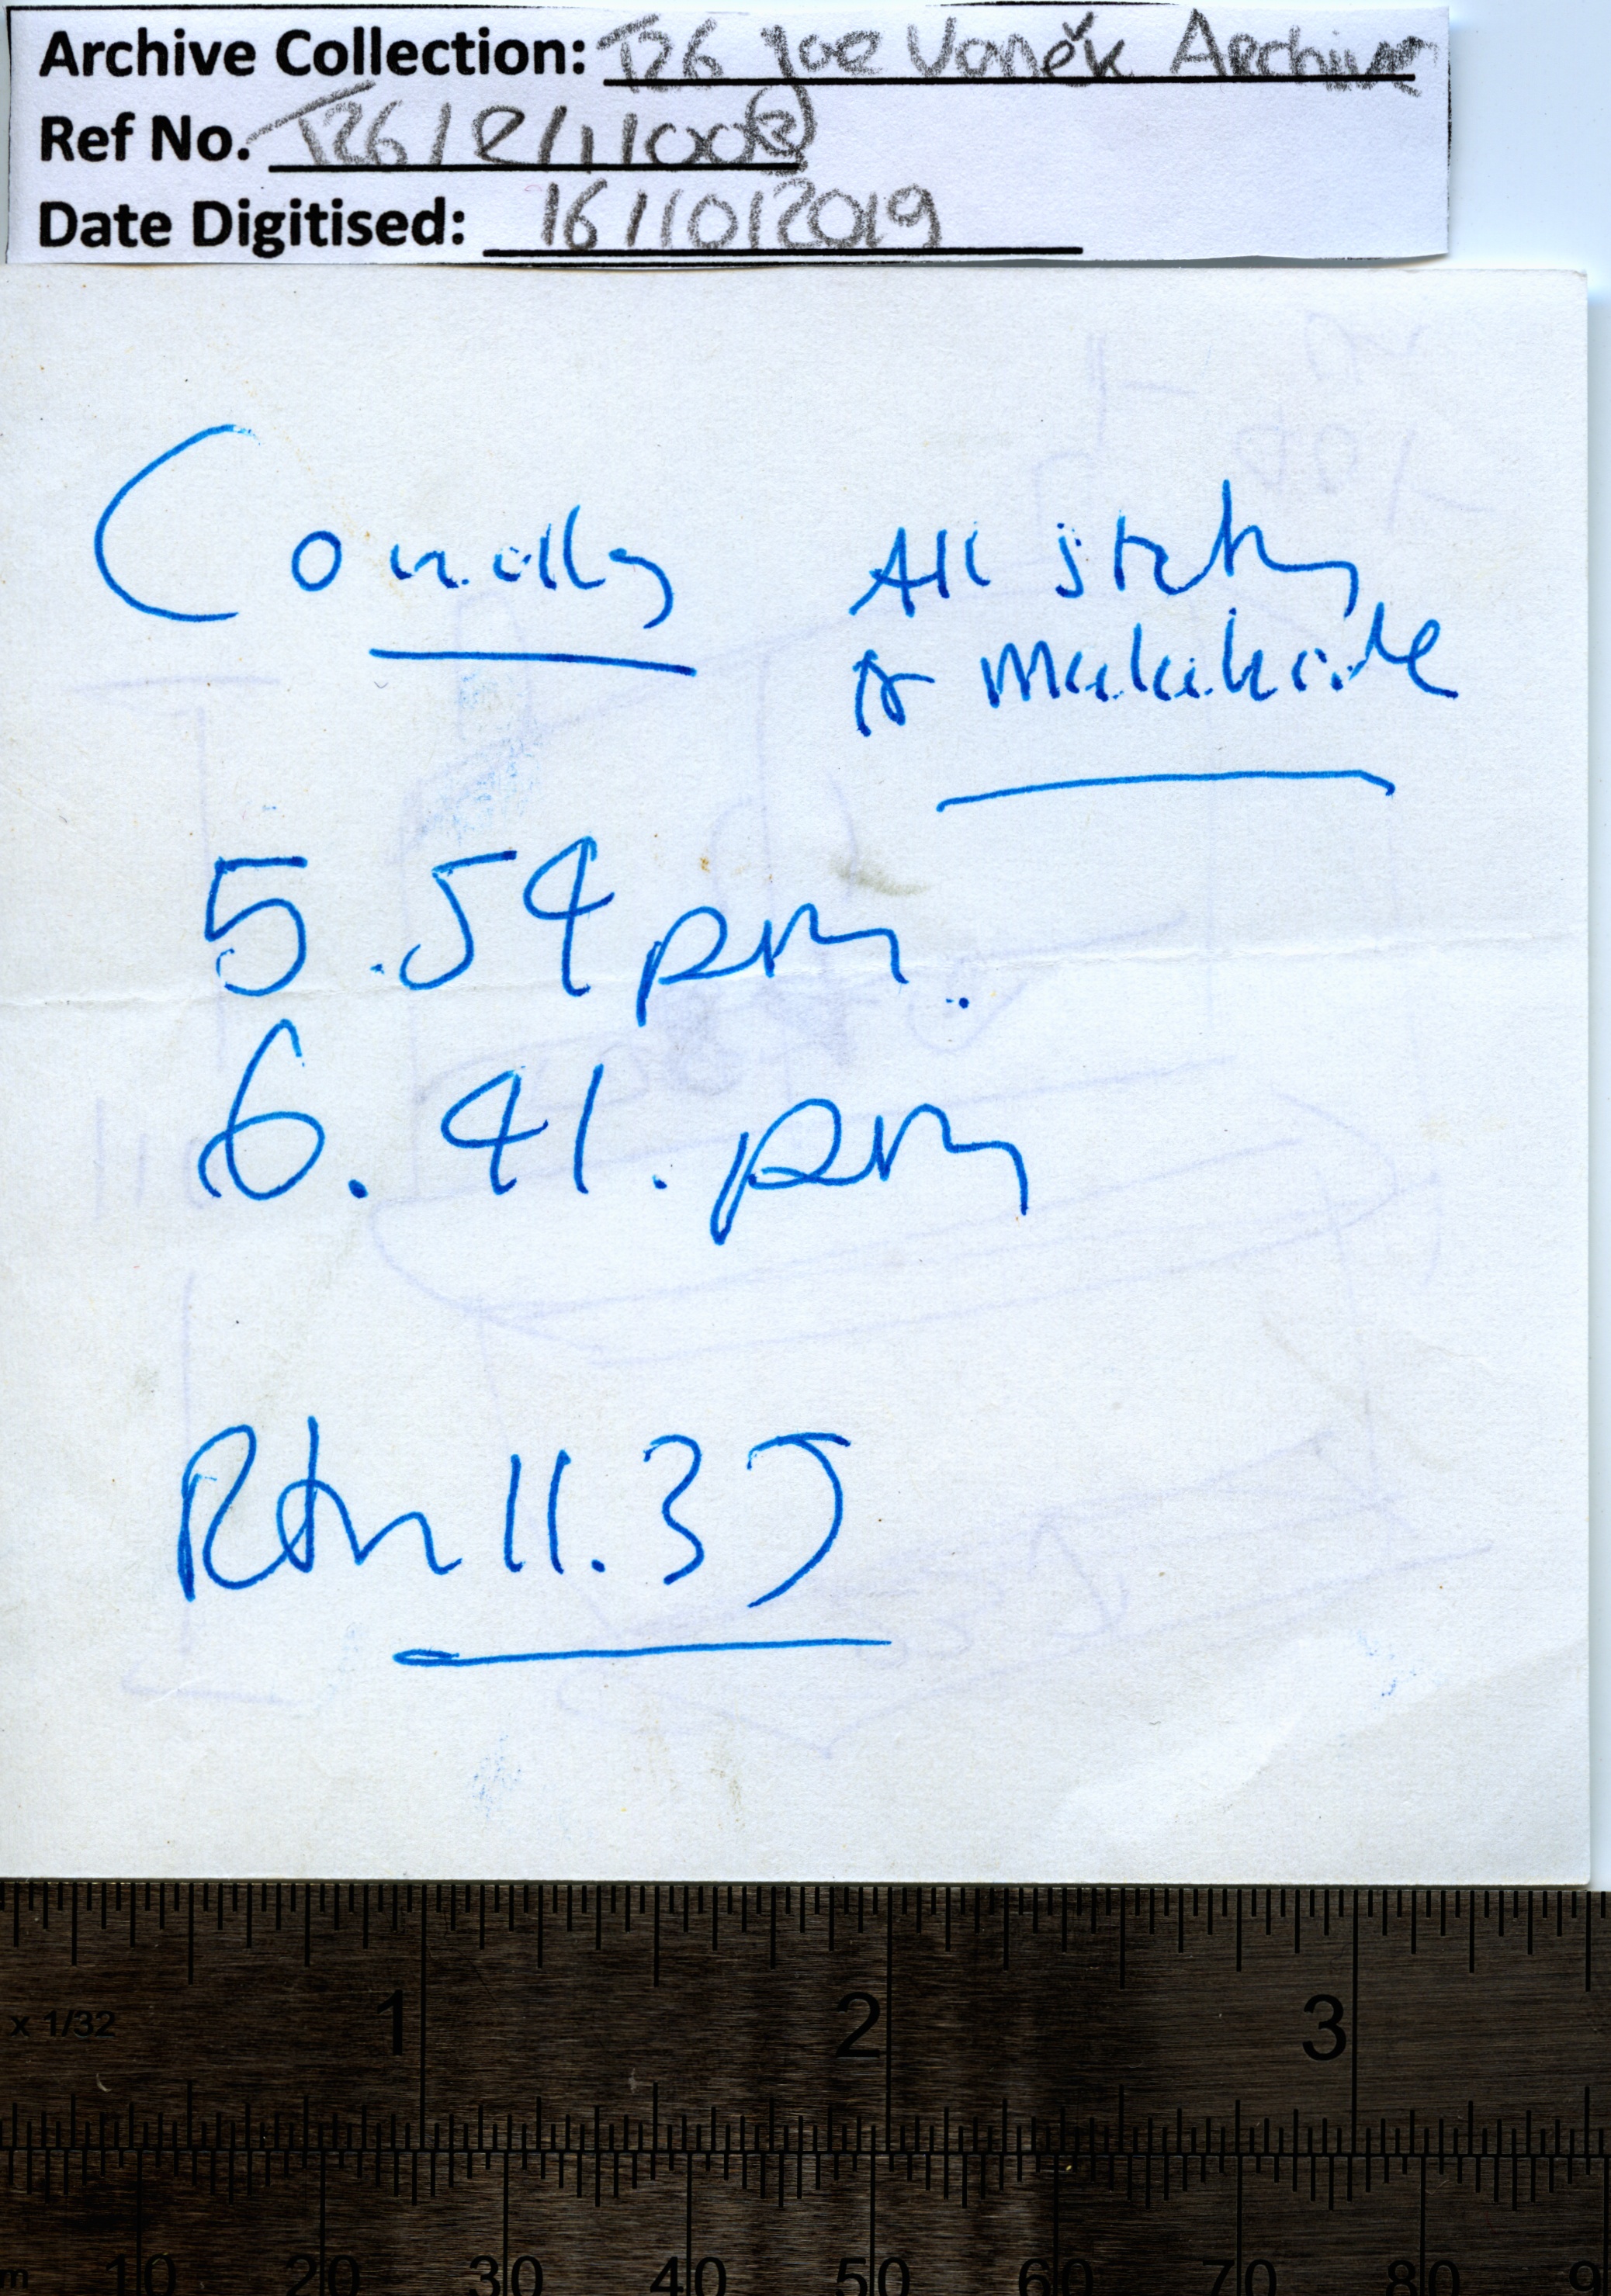 Archive Collection: T26 Joe Vaněk Archive
Ref No. T26/2/1/1008
Date Digitised: 16/10/2019
Conolly All statns
to Malahide
5.54pm.
6.41.pm
Rtn 11.35
x 1/32 1 2 3
m 10 20 30 40 50 60 70 80 9